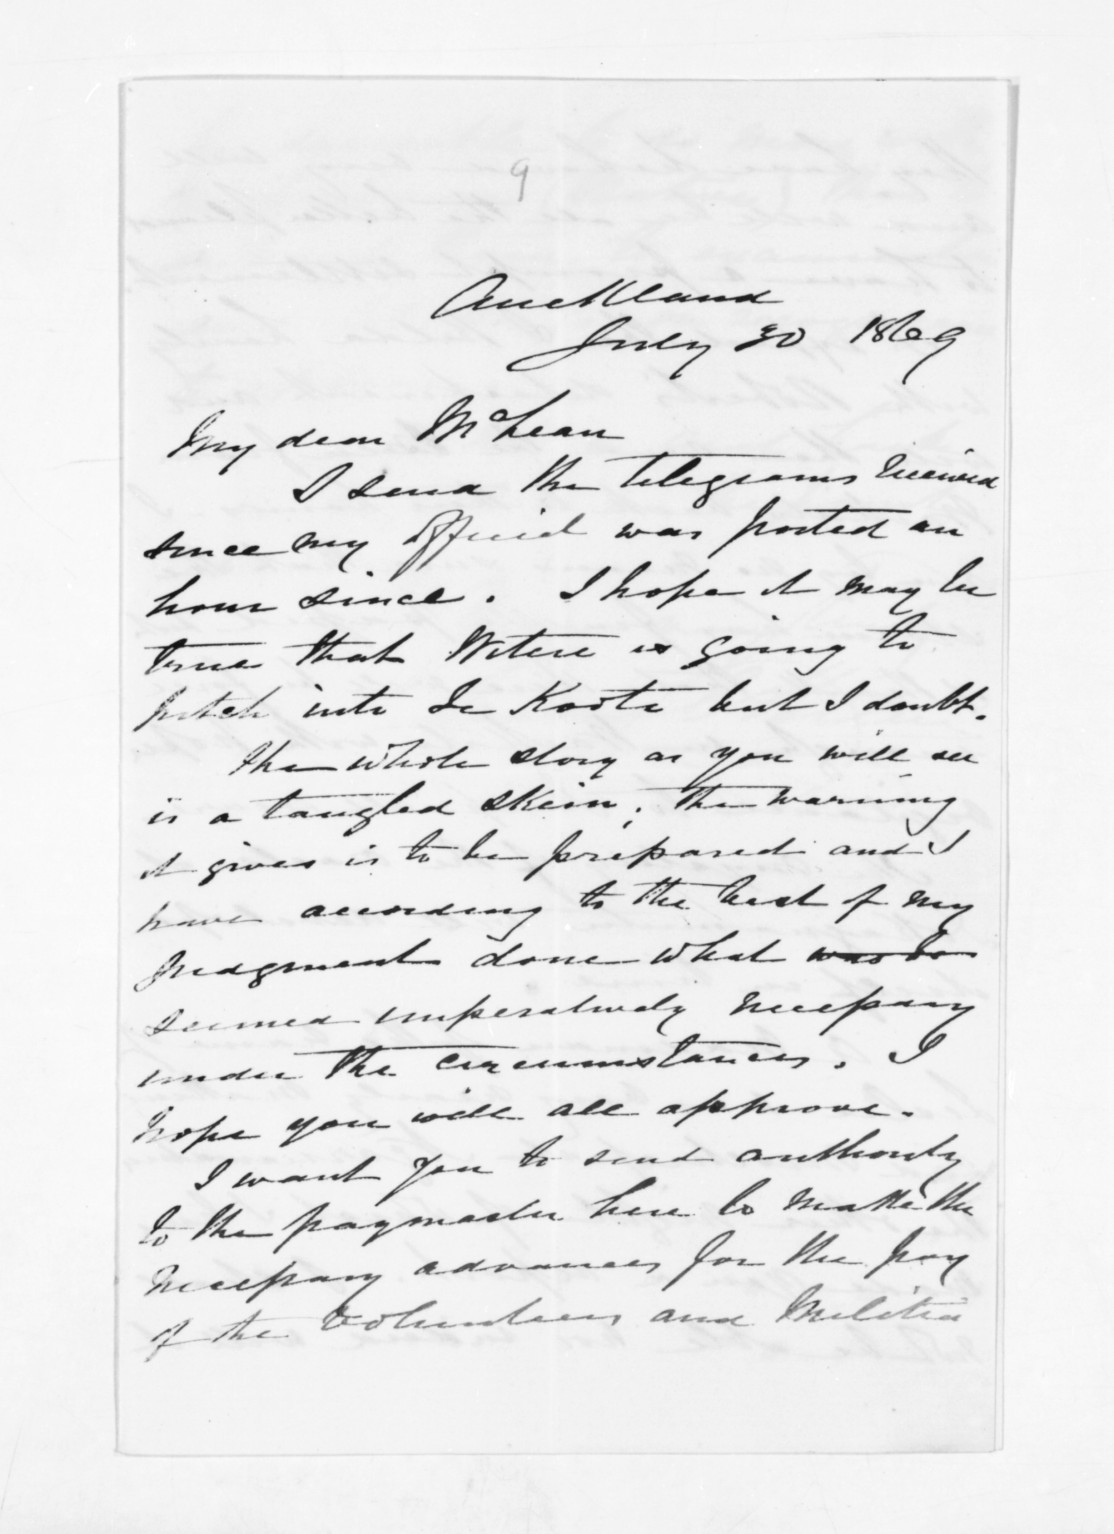 9
Auckland
July 30 1869
My dear McLean
I send the telegrams received
since my official was posted an
hour since. I hope it may be
true that Witere is going to
pitch into Te Kooti but I doubt.
The whole story as you will see
is a tangled skein; the warning
it gives is to be prepared and I
have according to the best of my
Judgment done what was to
seemed imperatively necessary
under the circumstances. I
hope you will all approve.
I want you to send authority
to the paymaster here to make the
necessary advances for the pay
of the Volunteers and Militia